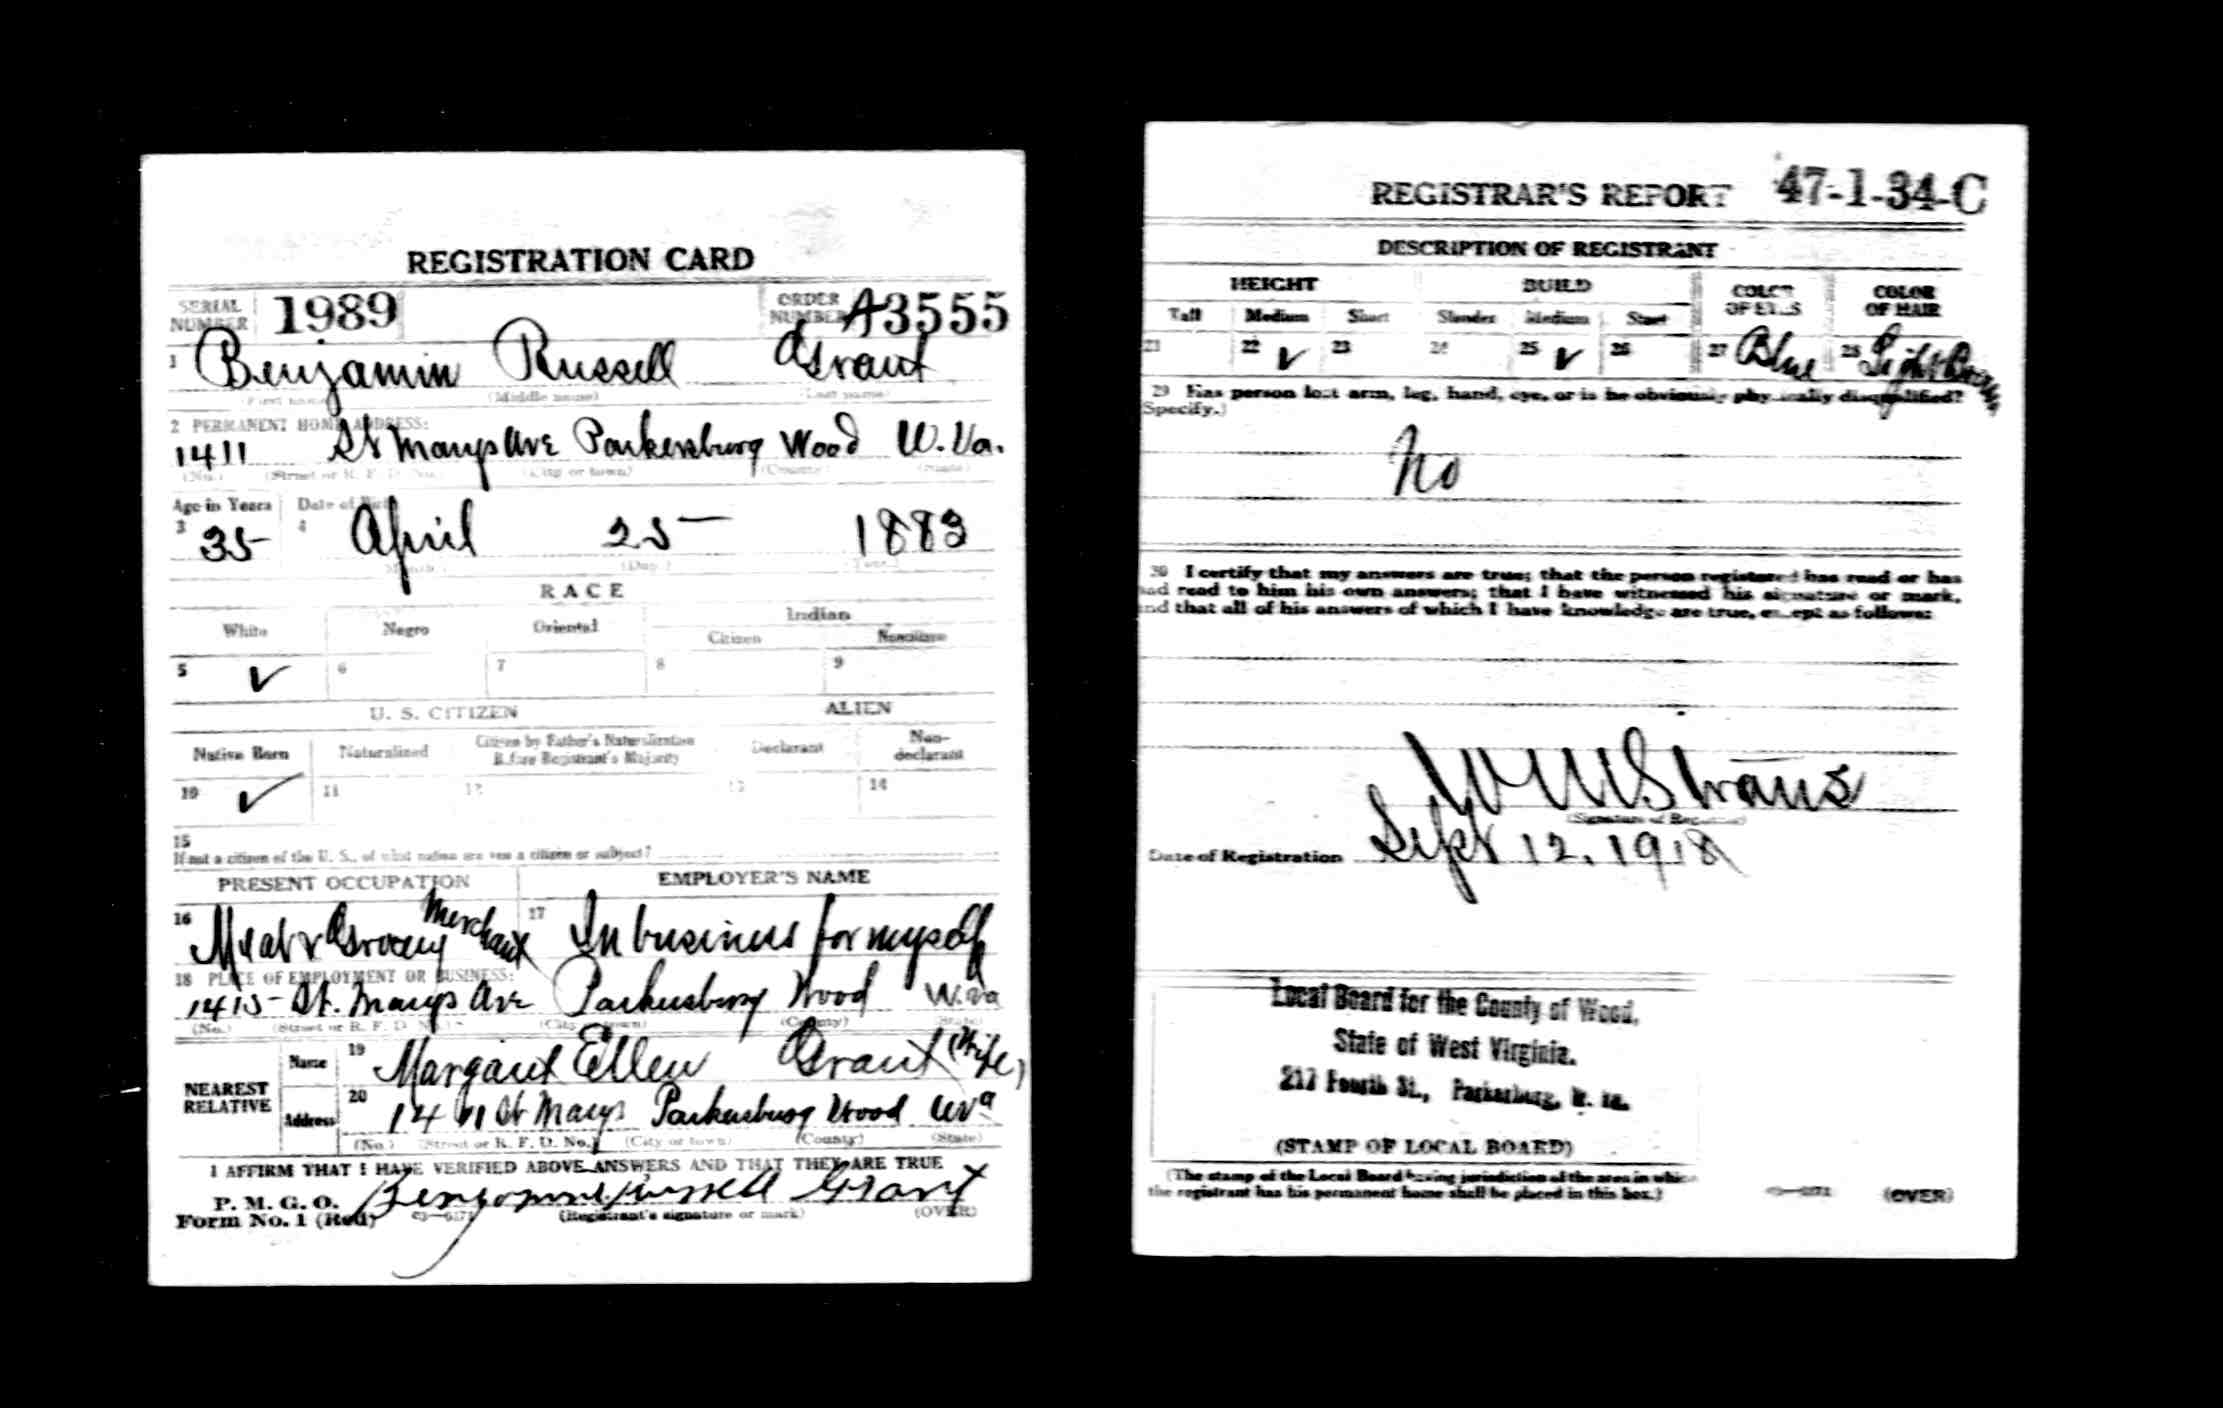 REGISTRATION CARD
SERIAL NUMBER 1989 ORDER NUMBER A3555
1 Benjamin Russell Grant
(First name) (Middle name) (Last name)
2 PERMANENT HOME ADDRESS:
1411 St Marys Ave Parkersburg Wood W.Va.
(No.) (Street or R. F. D. No.) (City or town) (County) (State)
Age in Years Date of Birth
3 35 4 April 25 1883
(Month.) (Day.) (Year.)
RACE
White Negro Oriental Indian
Citizen Noncitizen
5 ✓ 6 7 8 9
U. S. CITIZEN ALIEN
Native Born Naturalized Citizen by Father's Naturalization Before Registrant's Majority Declarant Non-declarant
10 ✓ 11 12 13 14
15
If not a citizen of the U. S., of what nation are you a citizen or subject?
PRESENT OCCUPATION EMPLOYER'S NAME
16 Meat & Grocery Merchant 17 In business for myself
18 PLACE OF EMPLOYMENT OR BUSINESS:
1415 St. Marys Ave Parkersburg Wood W.Va
(No.) (Street or R. F. D. No.) (City or town) (County) (State)
NEAREST RELATIVE
Name 19 Margaret Ellen Grant (Wife)
Address 20 1411 St Marys Parkersburg Wood Wva
(No.) (Street or R. F. D. No.) (City or town) (County) (State)
I AFFIRM THAT I HAVE VERIFIED ABOVE ANSWERS AND THAT THEY ARE TRUE
P. M. G. O.
Form No. 1 (Red) Benjamin Russell Grant
(Registrant's signature or mark) (OVER)
REGISTRAR'S REPORT 47-1-34-C
DESCRIPTION OF REGISTRANT
HEIGHT BUILD COLOR OF EYES COLOR OF HAIR
Tall Medium Short Slender Medium Stout
21 22 ✓ 23 24 25 ✓ 26 27 Blue 28 Light Brown
29 Has person lost arm, leg, hand, eye, or is he obviously physically disqualified?
(Specify.)
No
30 I certify that my answers are true; that the person registered has read or has
had read to him his own answers; that I have witnessed his signature or mark,
and that all of his answers of which I have knowledge are true, except as follows:
(Signature of Registrar)
Date of Registration Sept 12, 1918
Local Board for the County of Wood,
State of West Virginia.
217 Fourth St., Parkersburg, W. Va.
(STAMP OF LOCAL BOARD)
(The stamp of the Local Board having jurisdiction of the area in which
the registrant has his permanent home shall be placed in this box.)
(OVER)